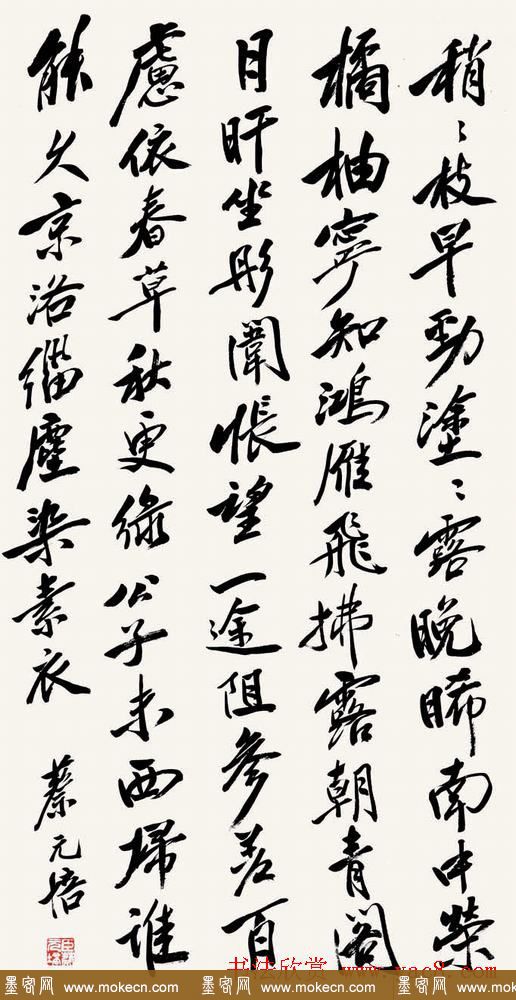 稍〻枝早勁塗〻露晚晞南中榮
橘柚寧知鴻雁飛拂露朝青閣
日旰坐彤闈悵望一途阻參差百
慮依春草秋更綠公子未西歸誰
能久京洛緇塵染素衣
蔡元培
书法欣赏
墨客网 www.mokecn.com 墨客网 www.mokecn.com 墨客网 www.mokecn.com